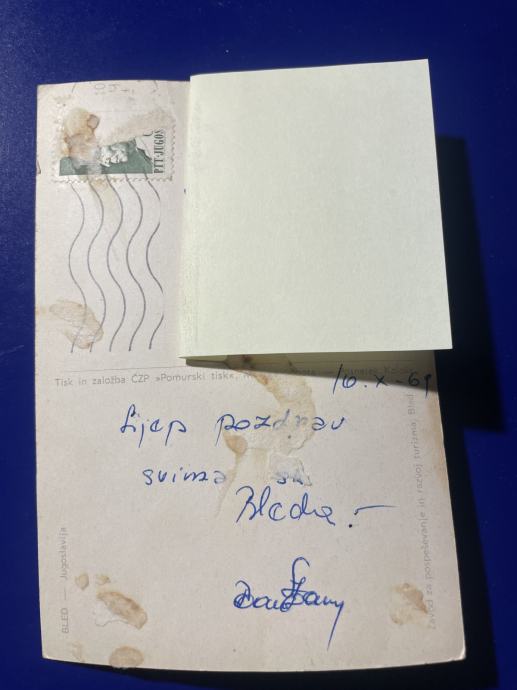 PTT-JUGOS
Tisk in založba ČZP »Pomurski tisk«,
16. X - 69
Lijep pozdrav
svima sa
Bleda. —
BLED — Jugoslavija
Zavod za pospeševanje in razvoj turizma, Bled